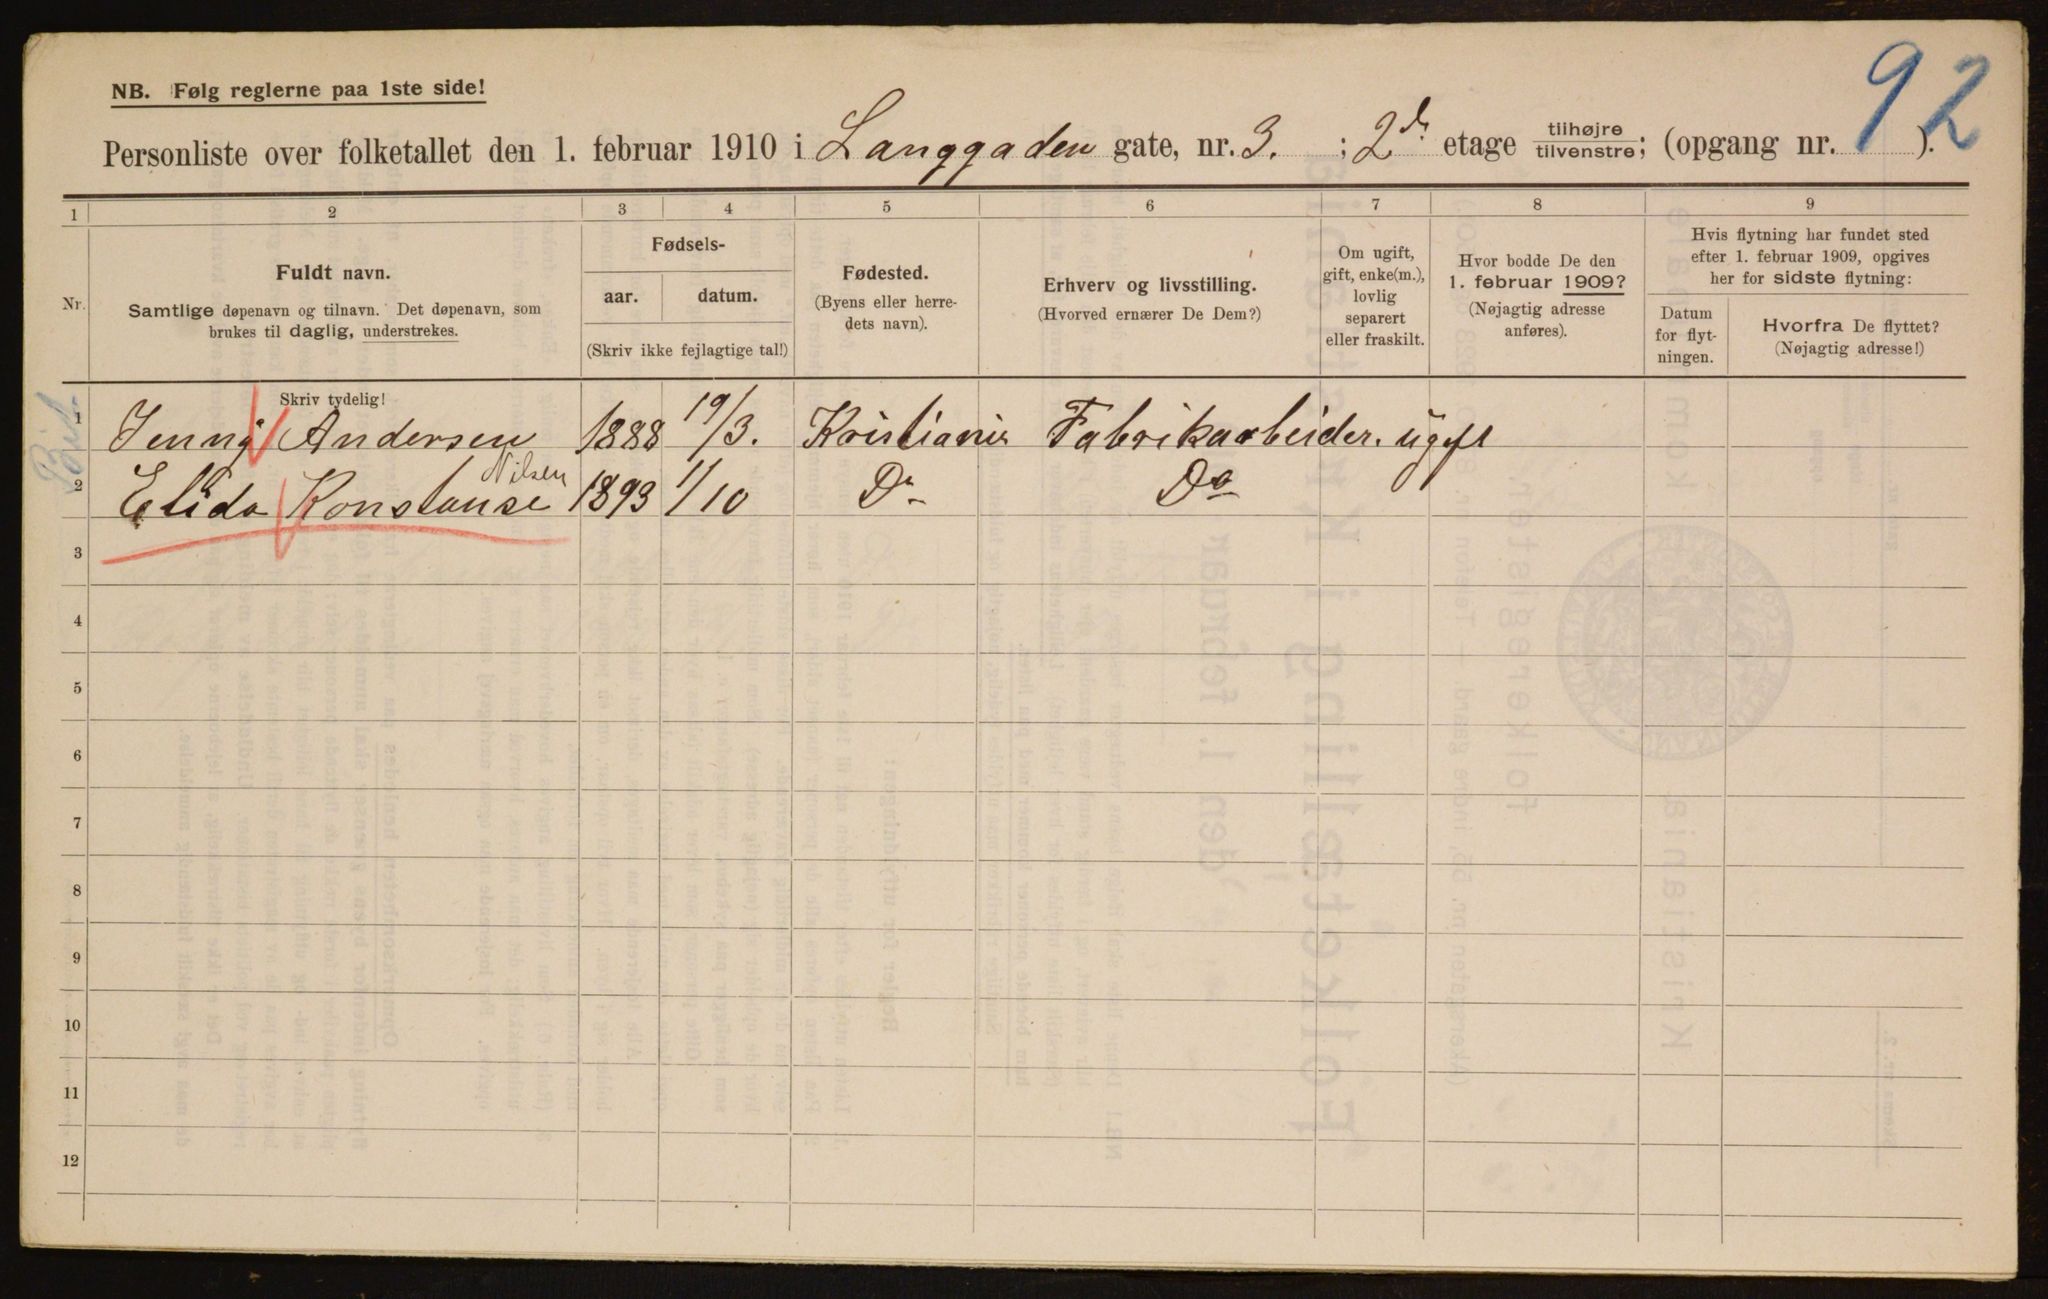 NB. Følg reglerne paa 1ste side!
92
Personliste over folketallet den 1. februar 1910 i Langgaden gate, nr. 3. ; 2d. etage tilhøjre/tilvenstre; (opgang nr. ).
1 2 3 4 5 6 7 8 9
Nr.
Fuldt navn.
Samtlige døpenavn og tilnavn. Det døpenavn, som
brukes til daglig, understrekes.
Fødsels-
aar. datum.
(Skriv ikke fejlagtige tal!)
Fødested.
(Byens eller herre-
dets navn).
Erhverv og livsstilling.
(Hvorved ernærer De Dem?)
Om ugift,
gift, enke(m.),
lovlig
separert
eller fraskilt.
Hvor bodde De den
1. februar 1909?
(Nøjagtig adresse
anføres).
Hvis flytning har fundet sted
efter 1. februar 1909, opgives
her for sidste flytning:
Datum
for flyt-
ningen.
Hvorfra De flyttet?
(Nøjagtig adresse!)
Skriv tydelig!
1 Jenny Andersen 1888 19/3. Kristiania Fabrikarbeider. ugift
Nilsen
2 Elida Konstanse 1893 1/10 Do Do
3
4
5
6
7
8
9
10
11
12